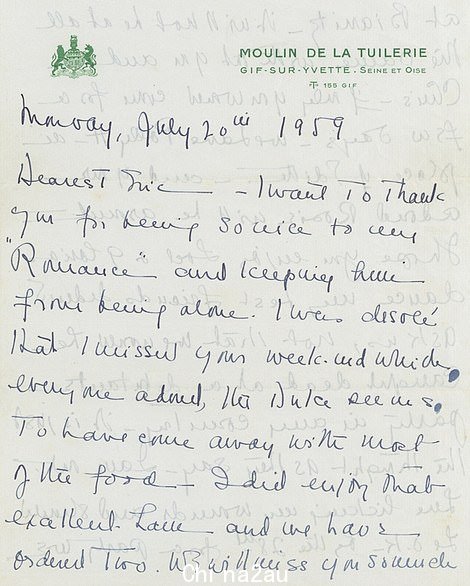 MOULIN DE LA TUILERIE
GIF-SUR-YVETTE. SEINE ET OISE
T 155 GIF
Monday, July 20th 1959
Dearest Eric — I want to thank
you for being so nice to my
"Romance" and keeping him
from being alone. I was désolé
that I missed your week-end which
everyone adored, the Duke seems
to have come away with most
of the food — I did enjoy that
excellent ham and we have
ordered two. We will miss you so much
Chi na2au